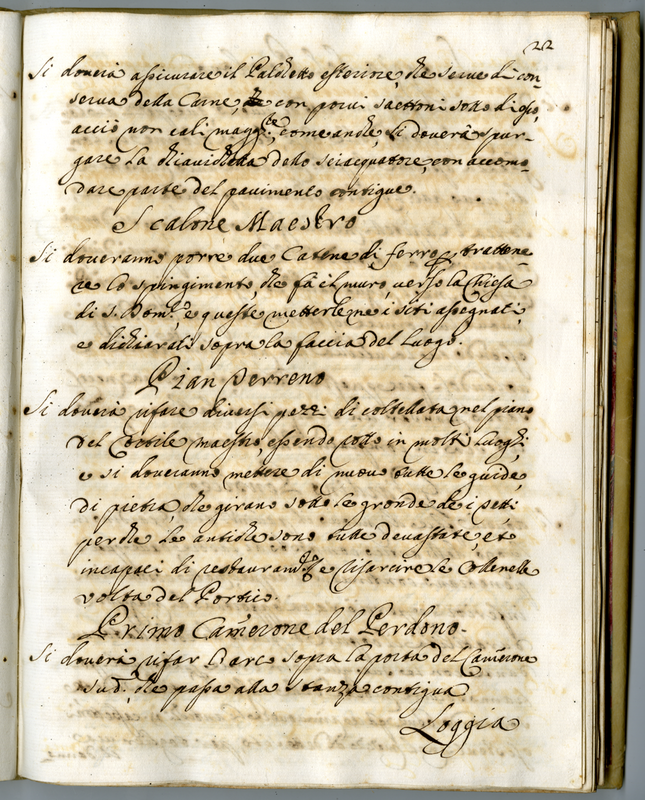 22
Si doverà assicurare il Palchetto esteriore, che serve di con-
serva della Carne, con poni saettoni sotto di esso,
acciò non cali magg.te, come anche si doverà spur-
gare la chiavichetta dello sciacquatore, con accomo-
dare parte del pavimento contiguo.
Scalone Maestro
Si doveranno porre due Catene di ferro p trattene-
re lo spingimento, che fà il muro verso la Chiesa
di S. Dom.co e queste metterle ne i siti assegnati,
e dichiarati sopra la faccia del luogo.
Pian Terreno
Si doverà rifare diversi pezzi di coltellata nel piano
del Cortile maestro, essendo rotto in molti luoghi;
e si doveranno mettere di nuovo tutte le guide
di pietra, che girano sotto le gronde de i tetti
perche le antiche sono tutte devastate, et
incapaci di e risarcire le
volta del Portico.
Primo Camerone del Perdono.
Si doverà rifar l'arco sopra la porta del Camerone
sud.o che passa alla stanza contigua
Loggia